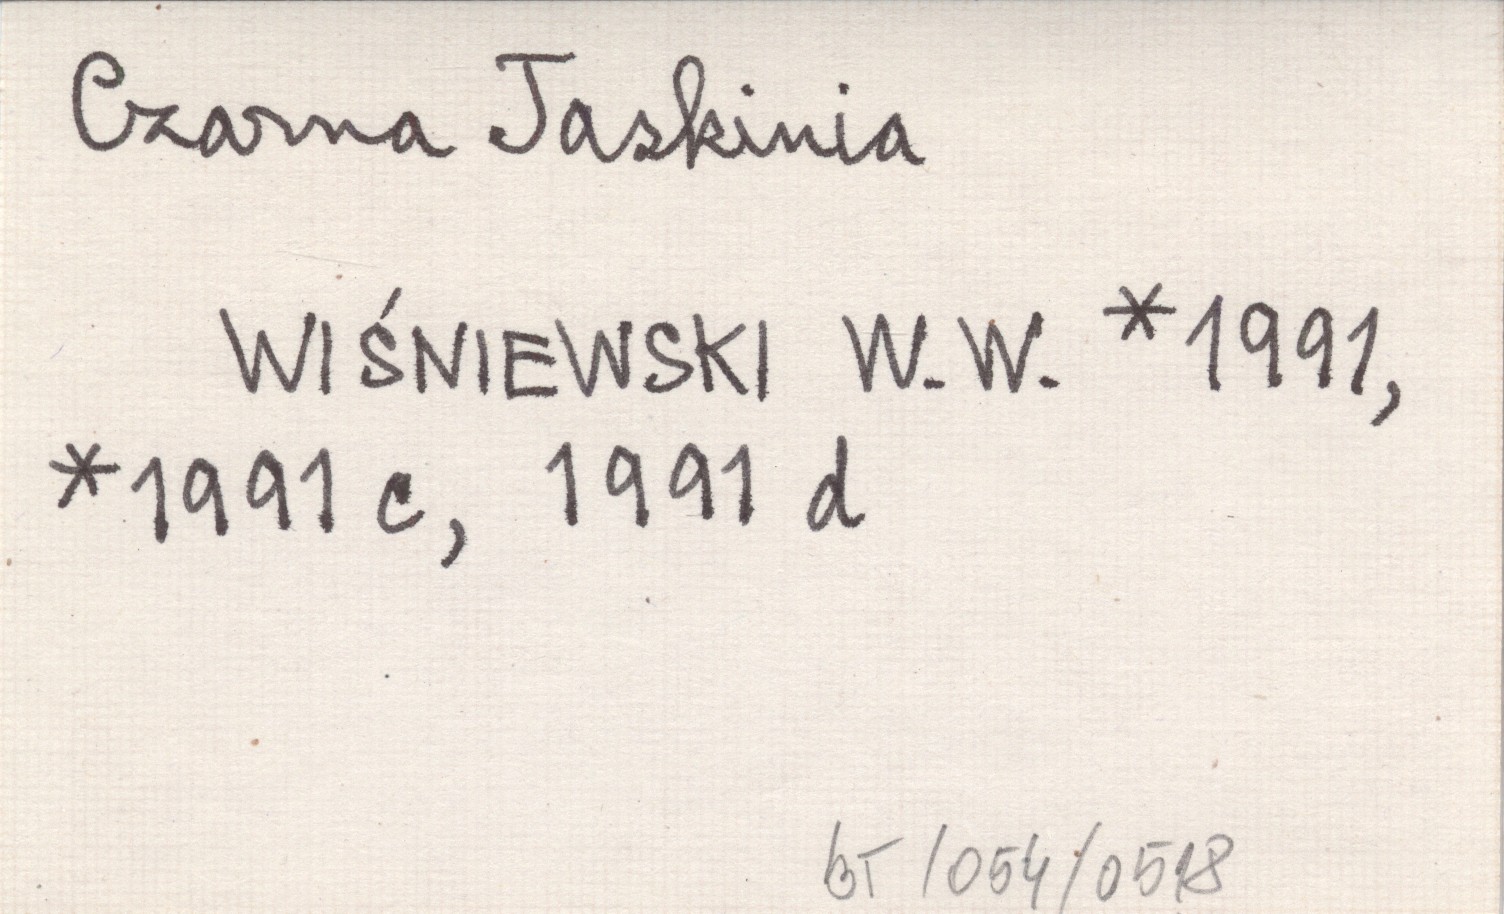 Czarna Jaskinia
WIŚNIEWSKI W.W. *1991,
*1991c, 1991d
BT/054/0518